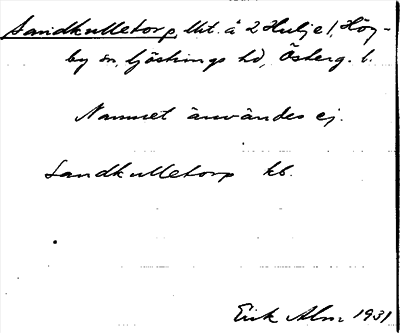 Sandkulletorp, lht. å 2 Hulje 1, Hög-
by sn, Göstrings hd, Österg. l.
Namnet användes ej.
Sandkulletorp kb.
Erik Alm 1931